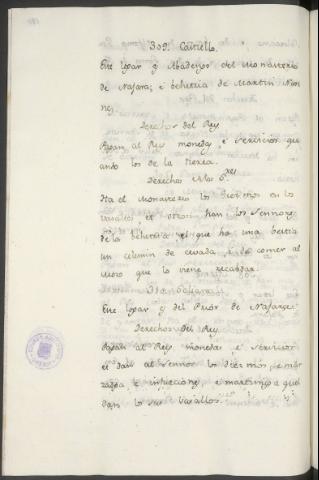 309. Castiello.
Este logar es Abadengo del Monasterio
de Najara; e behetria de Martin Nun
nez
Derechos del Rey
Pagan al Rey monedas, e servicios, qu
ando los de la tierra.
Derechos de los S.res
Ha el Monasterio los diezmos en los
vasallos, et otrosi han los Sennores
de la behetria el que ha una bestia
un celemin de cevada, e de comer al
mozo que lo viene recabdar.
Este logar es del Prior de Najara
Derechos del Rey
Pagan al Rey monedas e servicios
et dan al Sennor los diezmos, e mar
zadga, e infurciones, e martiniega que
dan los sus vasallos